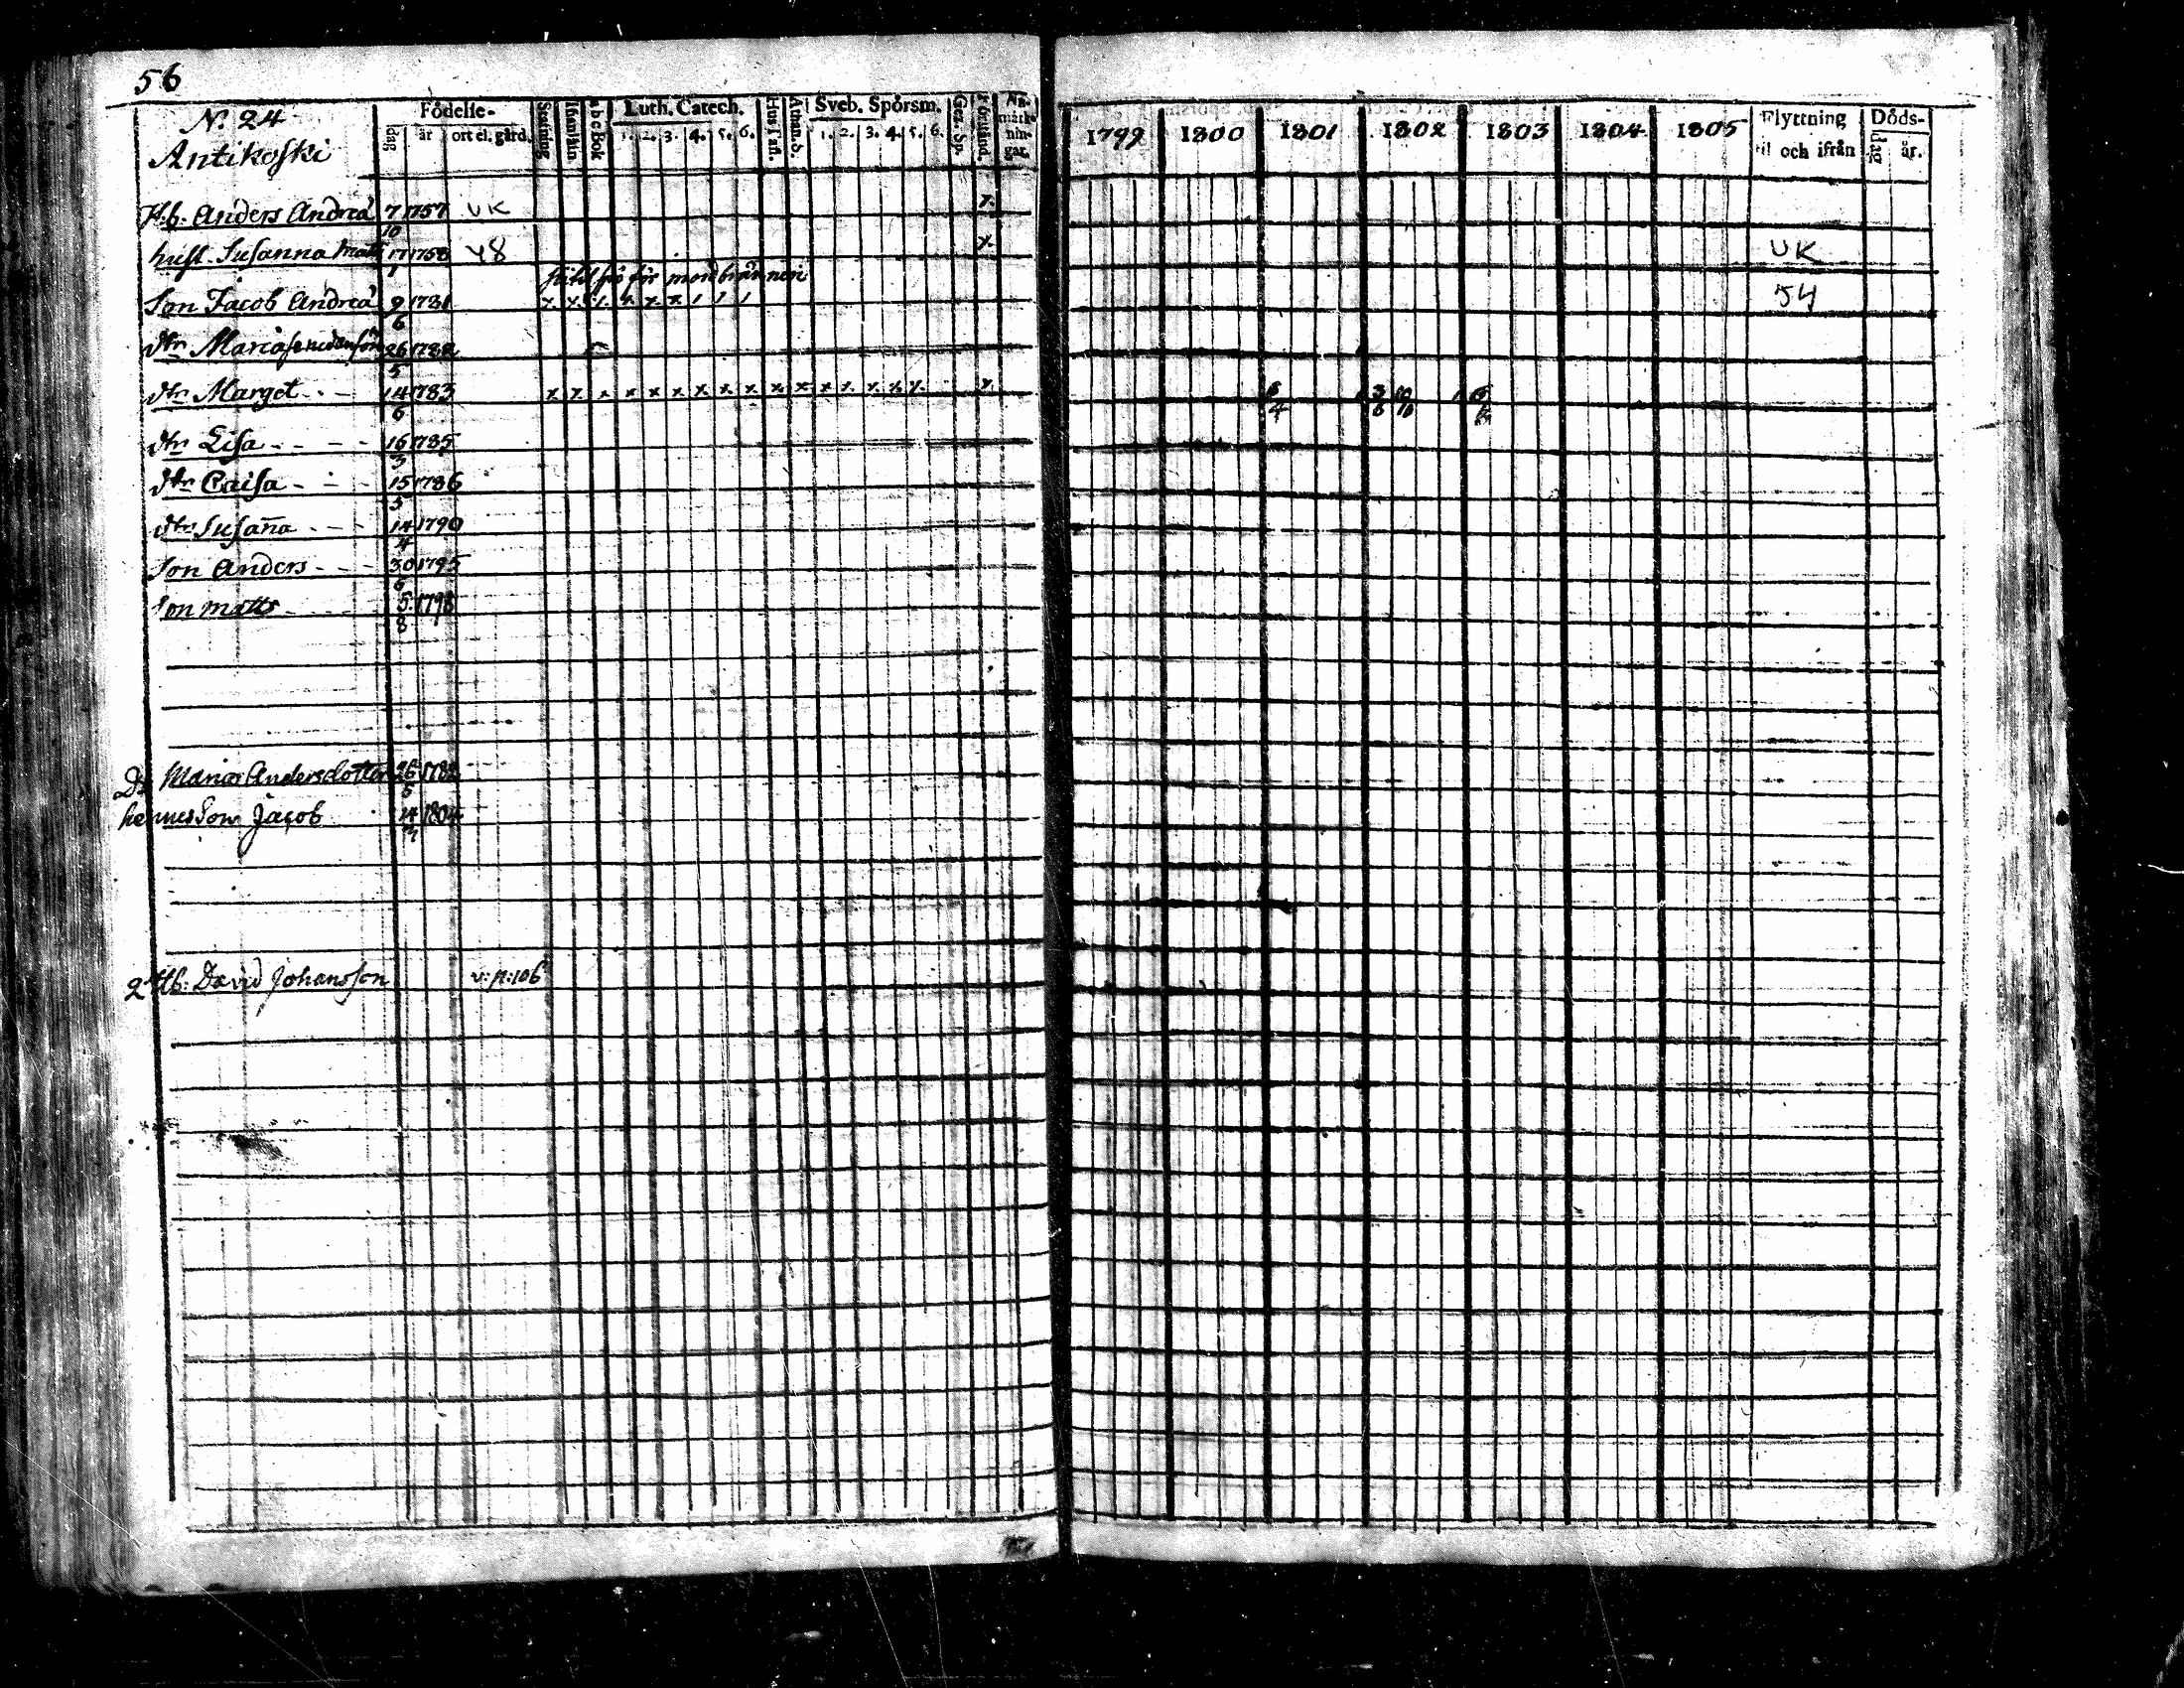 56
N:o 24
Antikoski
Födelse-
dag år ort el. gård.
Luth. Catech.
1. 2. 3. 4. 5. 6.
Hus Tafl.
Athan. S.
Sveb. Spörsm.
1. 2. 3. 4. 5. 6.
Förstånd.
An-
märk-
nin-
gar.
1799 1800 1801 1802 1803 1804 1805
Flyttning
til och ifrån
Döds-
dag år.
H.b. Anders Andreä 7/10 1757 UK x
hust. Susanna Matts 17/1 1758 48 x UK
54
Son Jacob Andreä 9/6 1781 x x x x x x 1 1 1
dtr Maria 26/5 1782
dtr Marget - - 14/6 1783 x x x x x x x x x x x x x x x x x
dtr Lisa - - - - 16/3 1785
dtr Caisa - - - 15/5 1786
dtr Susaña - - - 14/4 1790
Son Anders - - - 30/6 1795
Son Matts - - - 5/8 1798
Dr Maria Andersdotter 26/5 1782
hennes Son Jacob 14 1804
2 Hb: David Johansson v: p: 106